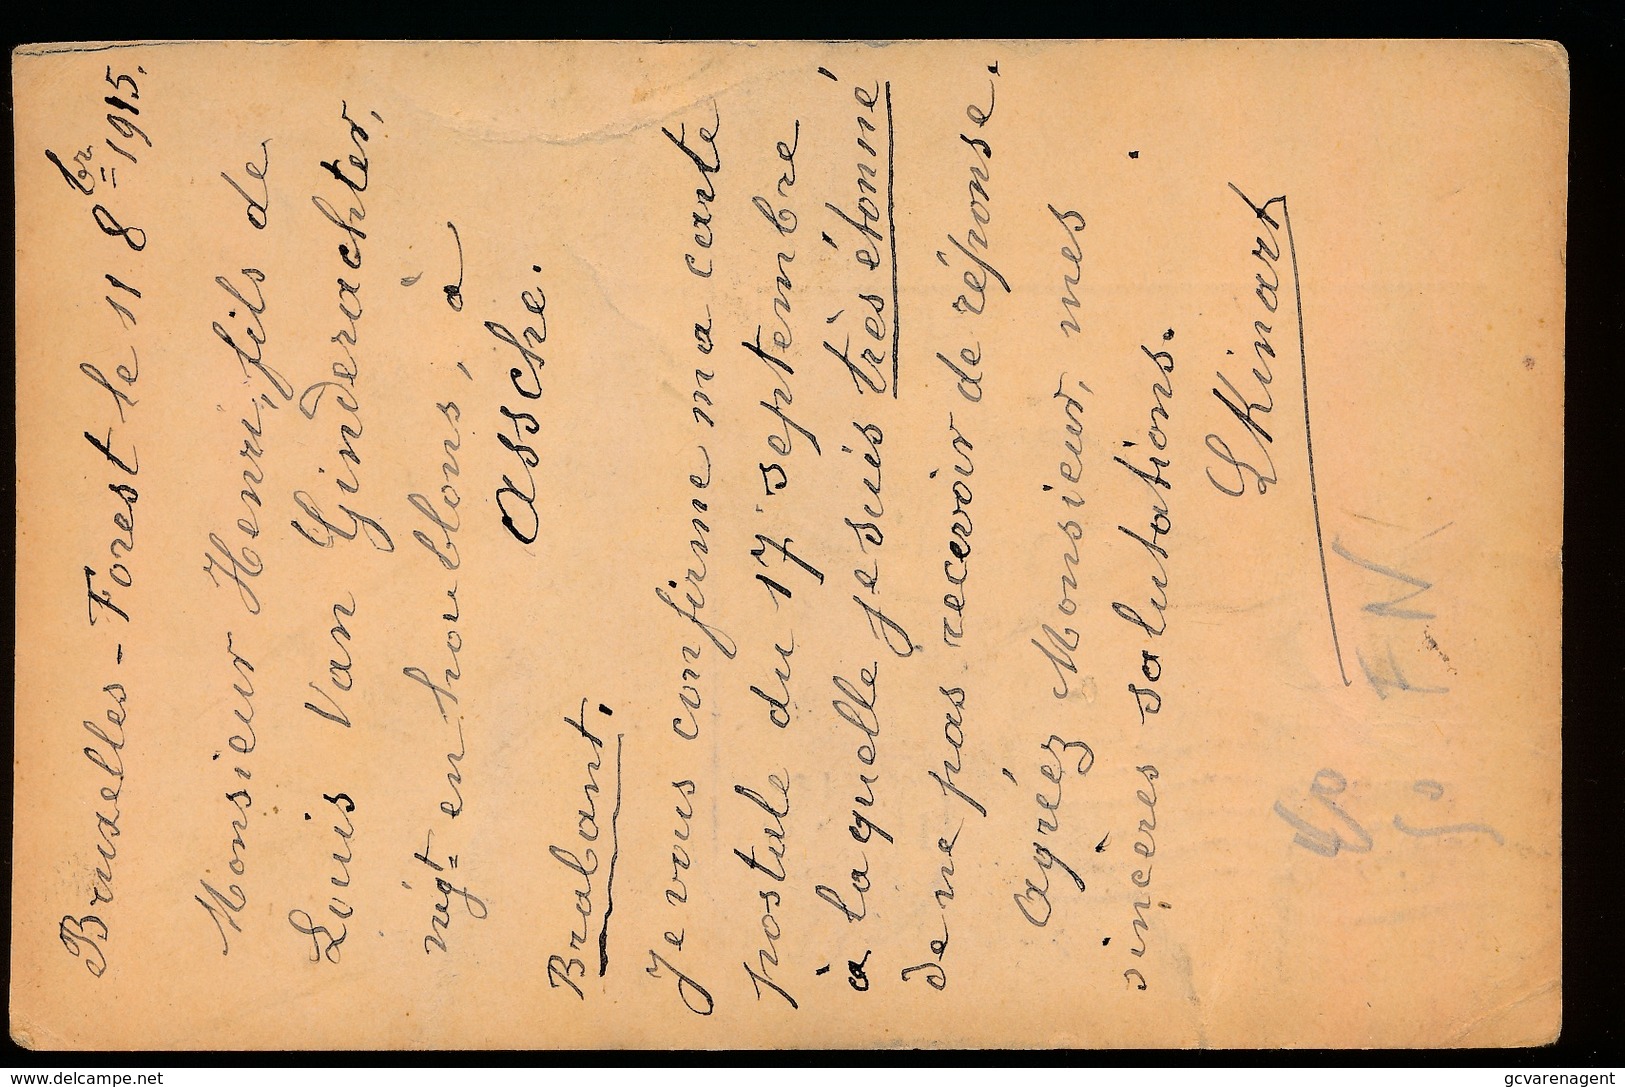 Bruxelles-Forest le 11 8br 1915.
Monsieur Henri, fils de
Louis Van Ginderachter,
négt en houblons, à
Assche.
Brabant.
Je vous confirme ma carte
postale du 17 septembre
à laquelle je suis très étonné
de ne pas recevoir de réponse.
Agréez Monsieur, mes
sincères salutations.
LKinart
FN
delcampe.net
gcvarenagent